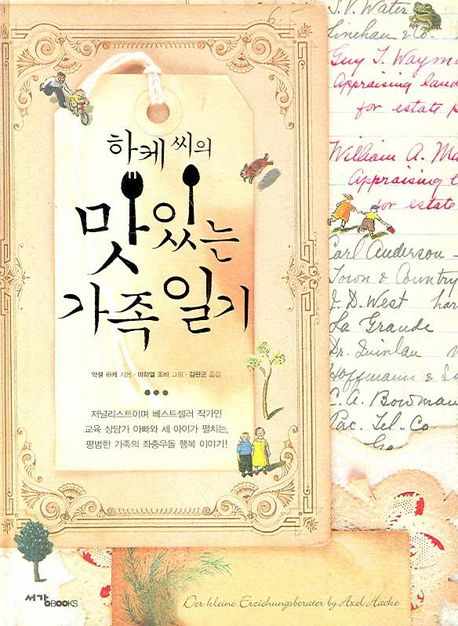 하케 씨의
맛있는
가족 일기
악셀 하케 지음 · 미하엘 조바 그림 · 김완균 옮김
저널리스트이며 베스트셀러 작가인
교육 상담가 아빠와 세 아이가 펼치는,
평범한 가족의 좌충우돌 행복 이야기!
J.V. Water
Linehan & Co.
Guy T. Waym
Appraising land
for estate p
William A. Ma
Appraising t
for estate
Carl Anderson -
Town & Country
J.D. West har
La Grande
Dr. Quinlan
Hoffmann &
C.A. Bowman
Pac. Tel. Co.
서강BOOKS
Der kleine Erziehungsberater by Axel Hacke